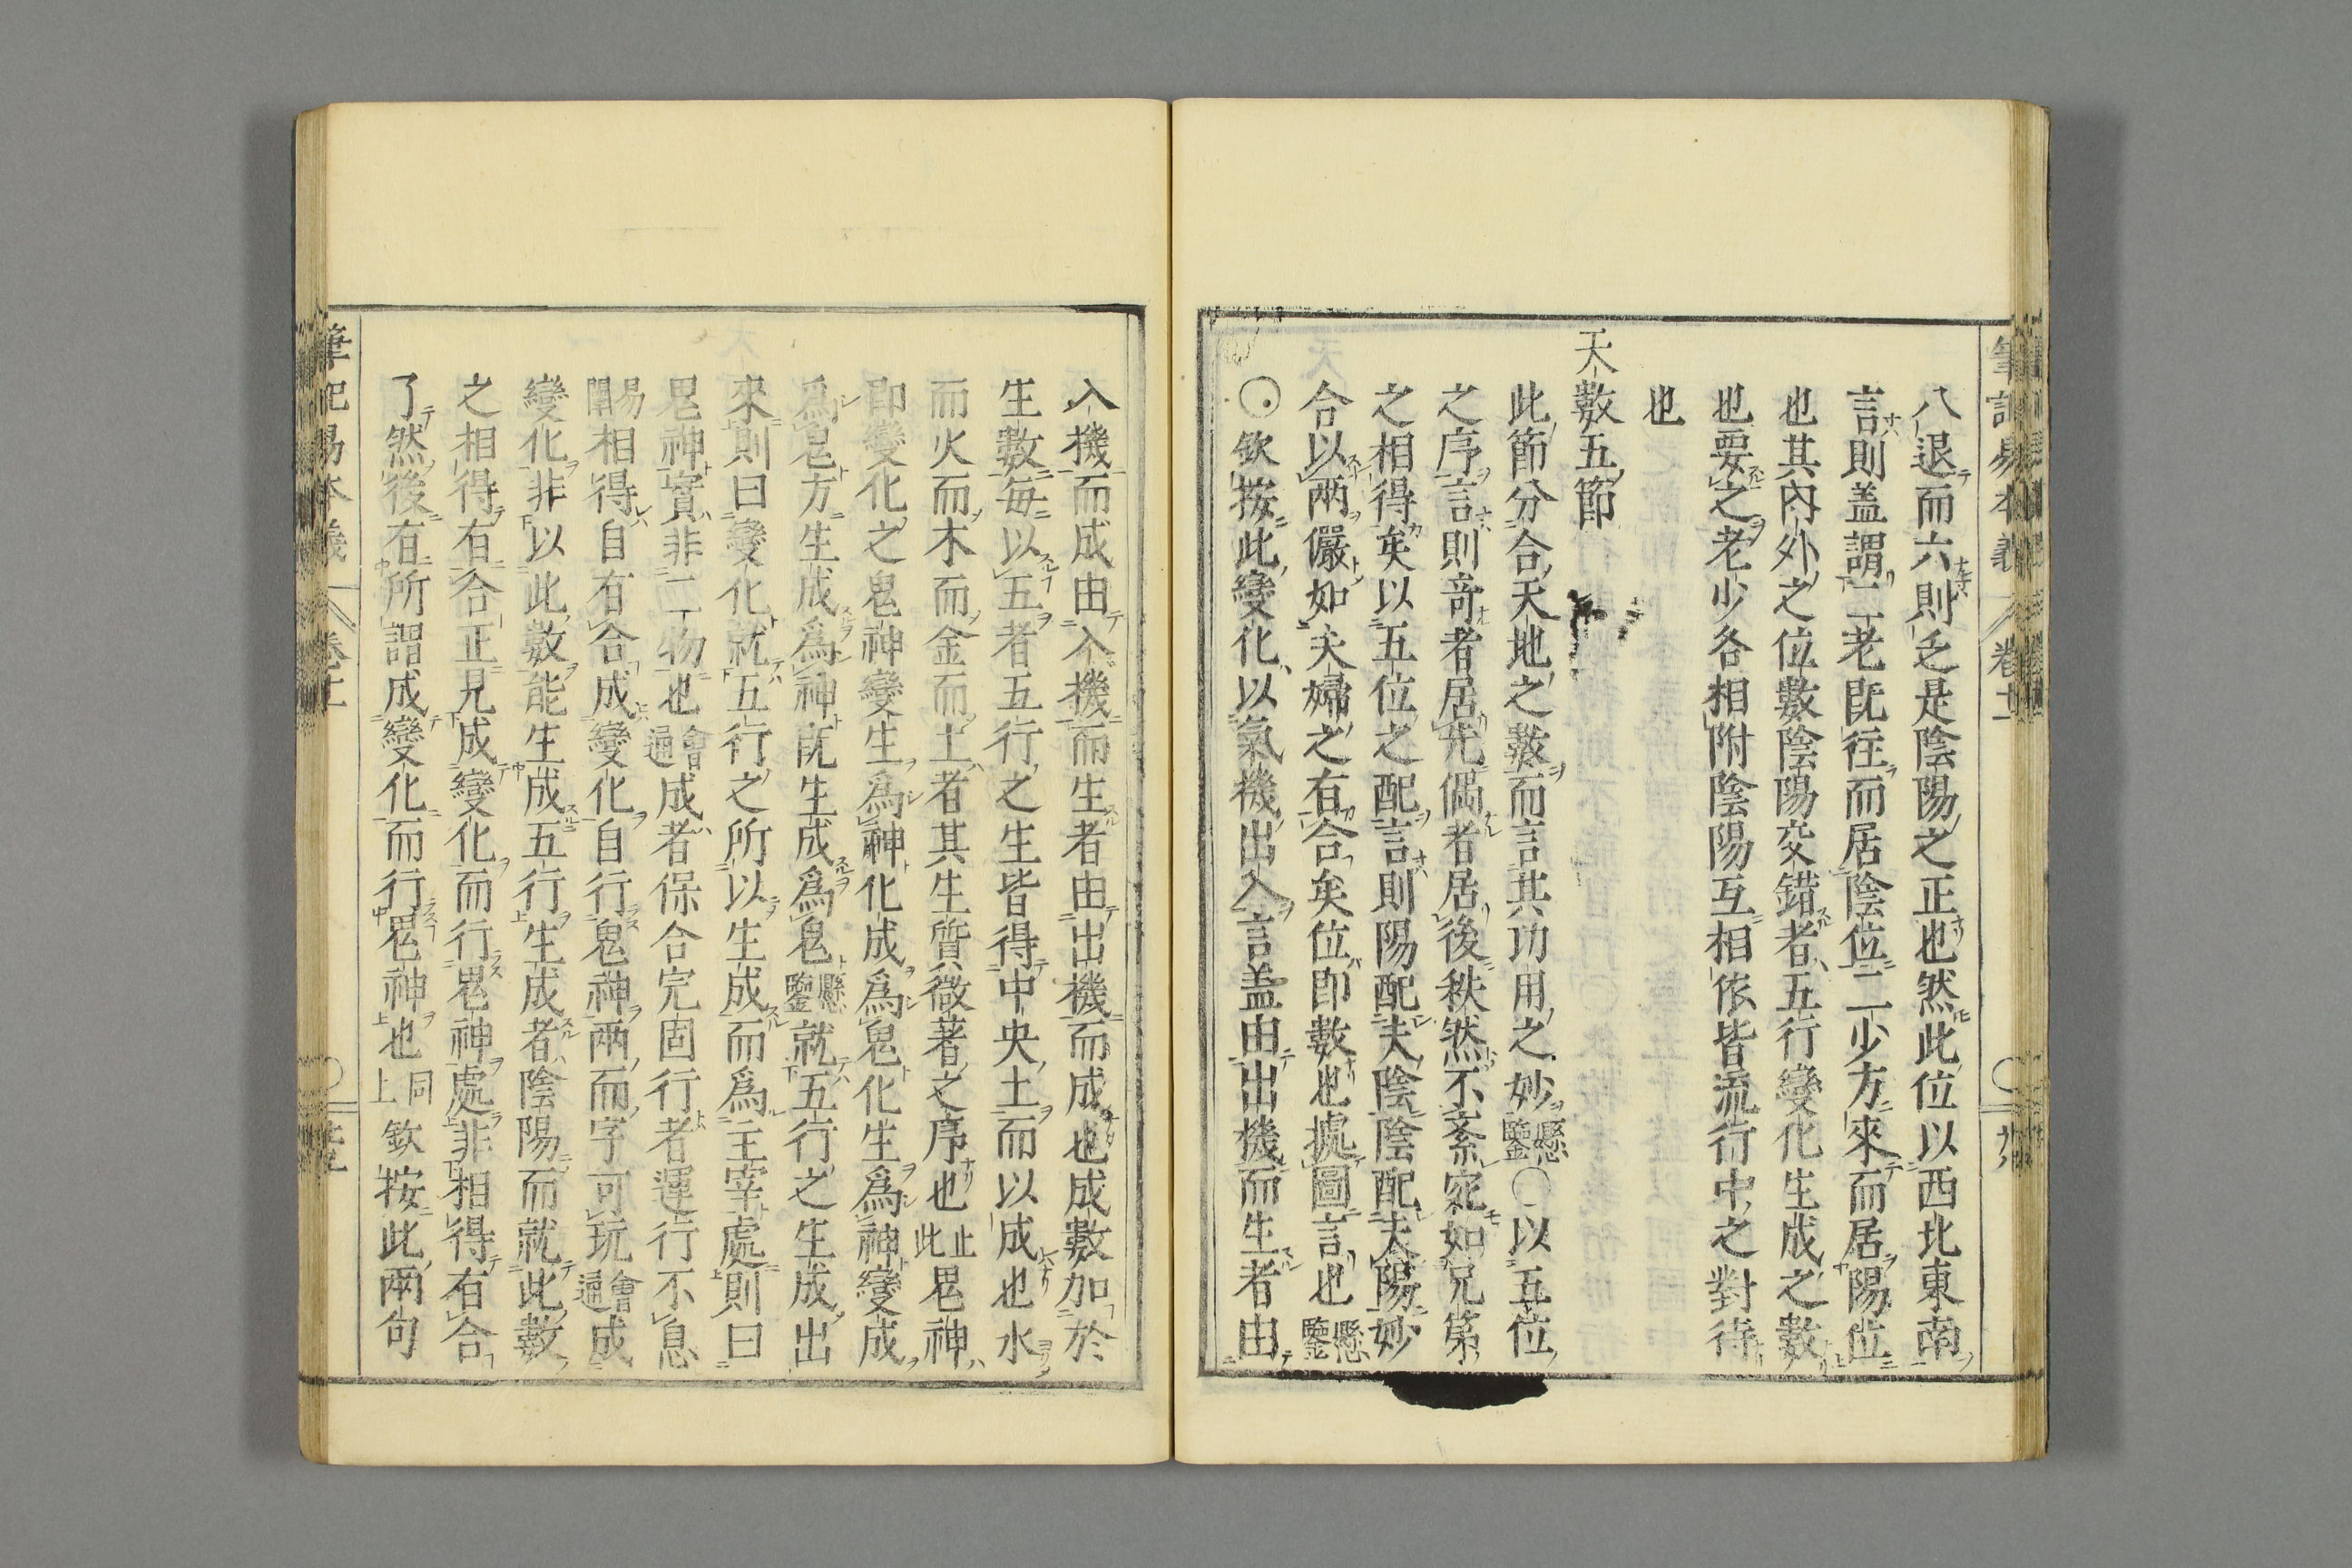 八退而六則乏是陰陽之正也然此位以西北東南
言則蓋謂二老既往而居陰位二少方來而居陽位
也其內外之位數陰陽交錯者五行變化生成之數
也要之老少各相附陰陽互相依皆流行中之對待
也
天數五節
此節分合天地之數而言其功用之妙懸鑒○以五位
之序言則竒者居先偶者居後秩然不紊宛如兄第
之相得矣以五位之配言則陽配夫陰陰配夫陽妙
合以兩儼如夫婦之有合矣位即數也據圖言也懸鑒
○欽按此變化以氣機出入言盖由出機而生者由
入機而成由入機而生者由出機而成也成數加於
生數每以五者五行之生皆得中央土而以成也水
而火而木而金而土者其生質微著之序也止此鬼神
即變化之鬼神變生爲神化成爲鬼化生爲神變成
爲鬼方生成爲神既生成爲鬼懸鑒就五行之生成出
來則曰變化就五行之所以生成而爲主宰處則曰
鬼神實非二物也會通成者保合完固行者運行不息
易開相得自有合成變化自行鬼神兩而字可玩會通成
變化非以此數能生成五行生成者陰陽而就此數
之相得有合正見成變化而行鬼神處非相得有合
了然後有所謂成變化而行鬼神也同上欽按此兩句